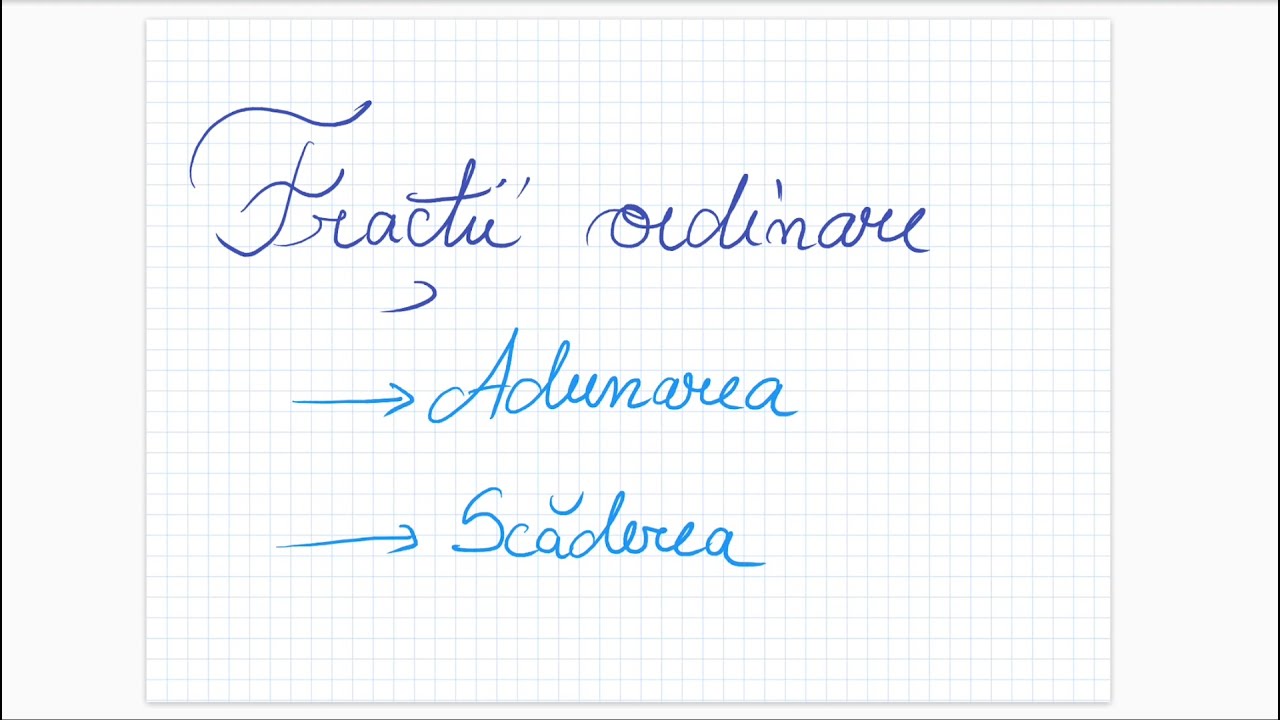 Fracții ordinare
→ Adunarea
→ Scăderea